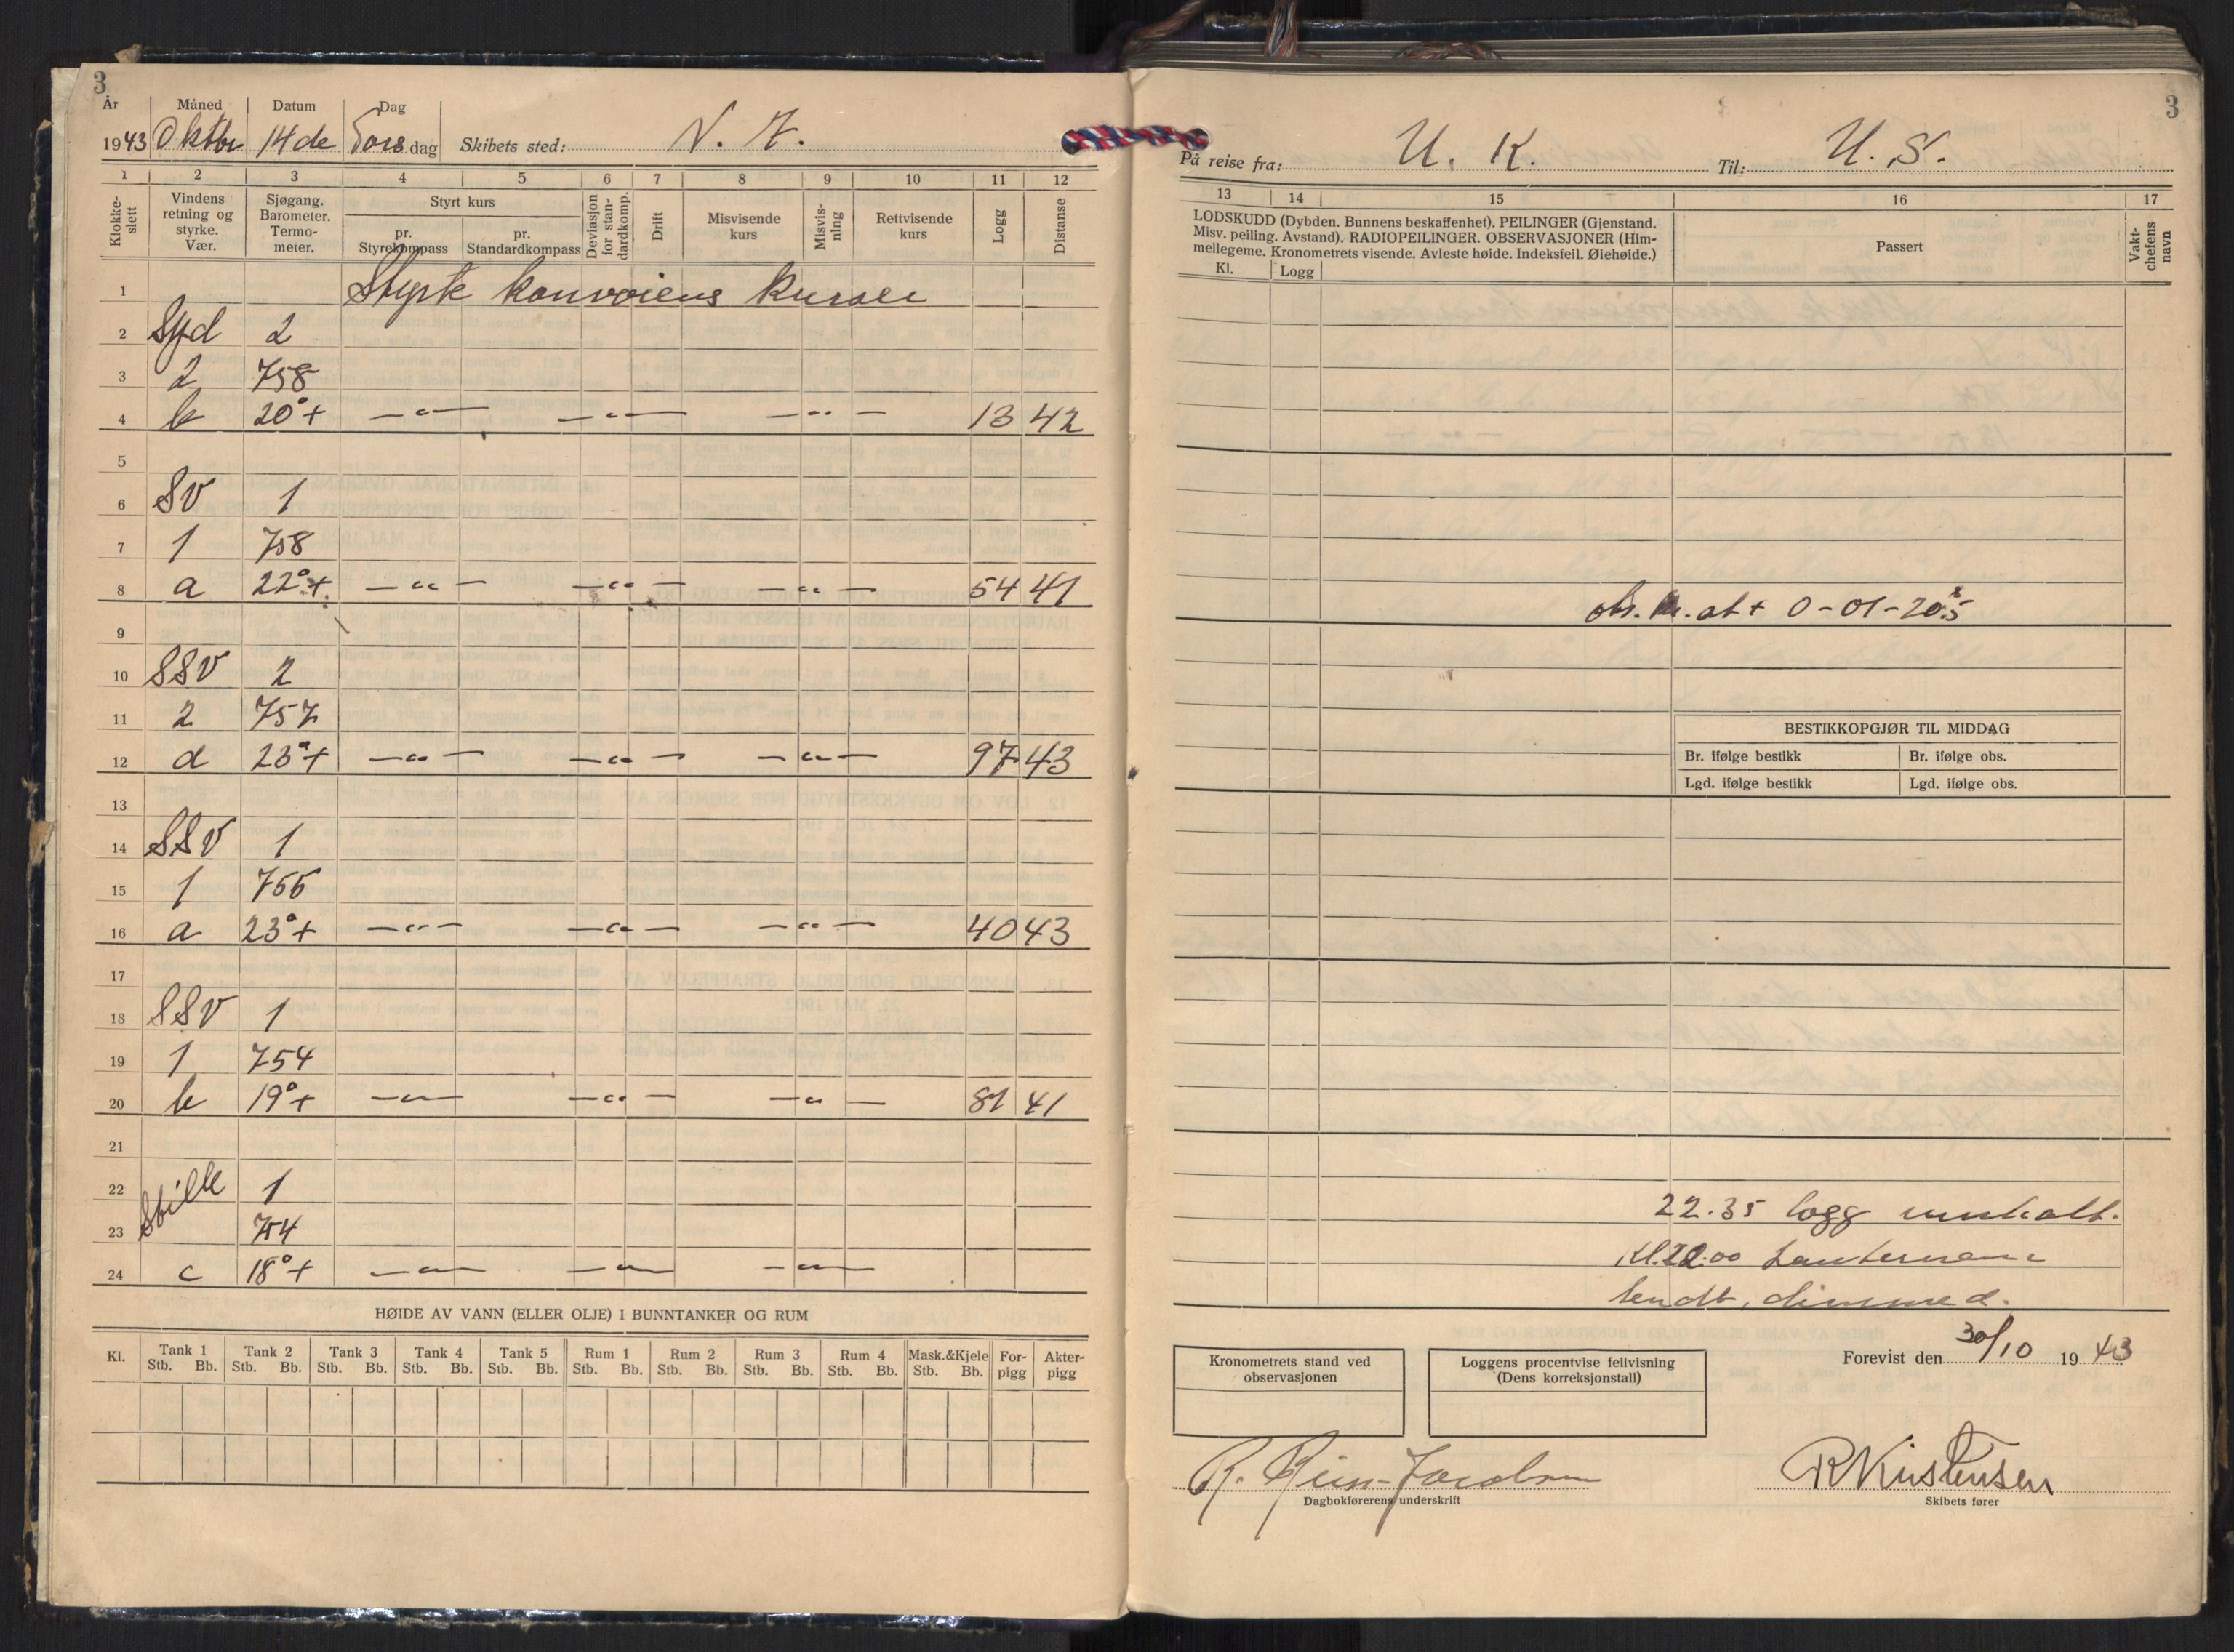 3
År Måned Datum Dag
1943 Oktbr 14de Torsdag Skibets sted:
1 2 3 4 5 6 7 8 9 10 11 12
Klokke-slett
Vindens retning og styrke. Vær.
Sjøgang. Barometer. Termo-meter.
Styrt kurs
pr. Styrekompass
pr. Standardkompass
Deviasjon for stan-dardkomp.
Drift
Misvisende kurs
Misvis-ning
Rettvisende kurs
Logg
Distanse
1 Styrte konvoiens kurser
2 Syd 2
3 2 758
4 b 20°+ — " — — " — — " — 13 42
5
6 SV 1
7 1 758
8 a 22°+ — " — — " — — " — 54 41
9
10 SSV 2
11 2 757
12 d 23°+ — " — — " — — " — 97 43
13
14 SSV 1
15 1 755
16 a 23°+ — " — — " — — " — 40 43
17
18 SSV 1
19 1 754
20 b 19°+ — " — — " — — " — 81 41
21
22 Stille 1
23 754
24 c 18°+ — " — — " — — " —
HØIDE AV VANN (ELLER OLJE) I BUNNTANKER OG RUM
Kl. Tank 1 Tank 2 Tank 3 Tank 4 Tank 5 Rum 1 Rum 2 Rum 3 Rum 4 Mask.&Kjele For-pigg Akter-pigg
Stb. Bb. Stb. Bb. Stb. Bb. Stb. Bb. Stb. Bb. Stb. Bb. Stb. Bb. Stb. Bb. Stb. Bb. Stb. Bb.
3
På reise fra: U. K. Til: U. S.
13 14 15 16 17
LODSKUDD (Dybden. Bunnens beskaffenhet). PEILINGER (Gjenstand.
Misv. peiling. Avstand). RADIOPEILINGER. OBSERVASJONER (Him-
mellegeme. Kronometrets visende. Avleste høide. Indeksfeil. Øiehøide.)
Kl. Logg
Passert
Vakt-chefens navn
obs. kr. st + 0-01-20.5
BESTIKKOPGJØR TIL MIDDAG
Br. ifølge bestikk Br. ifølge obs.
Lgd. ifølge bestikk Lgd. ifølge obs.
22.35 logg innhalt.
Kl. 22.00 Lanternene
tendt, dimmed.
Kronometrets stand ved observasjonen
Loggens procentvise feilvisning (Dens korreksjonstall)
Forevist den 30/10 1943
R. Rein-Jacobsen
Dagbokførerens underskrift
R Kristensen
Skibets fører